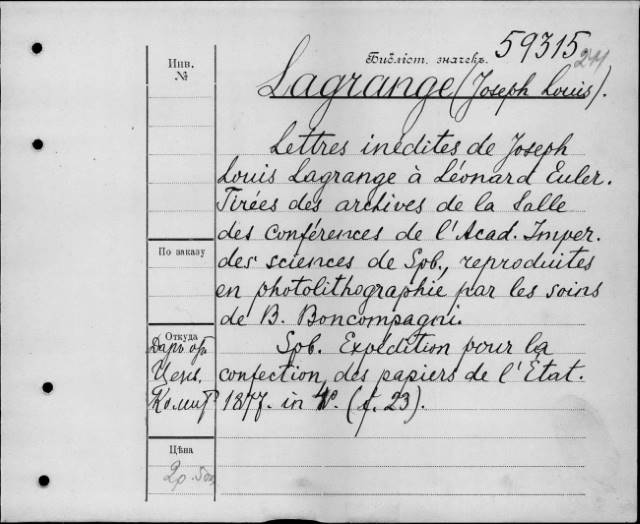 Инв.
№
Библіот. значекъ.
59315
Lagrange (Joseph Louis).
Lettres inédites de Joseph
Louis Lagrange à Léonard Euler.
Tirées des archives de la Salle
des conférences de l'Acad. Imper.
des sciences de Spb., reproduites
en photolithographie par les soins
de B. Boncompagni.
Spb. Expédition pour la
confection des papiers de l'État.
1877. in 4°. (f. 23).
По заказу
Откуда
Даръ
Ценз.
Комит.
Цѣна
2р.